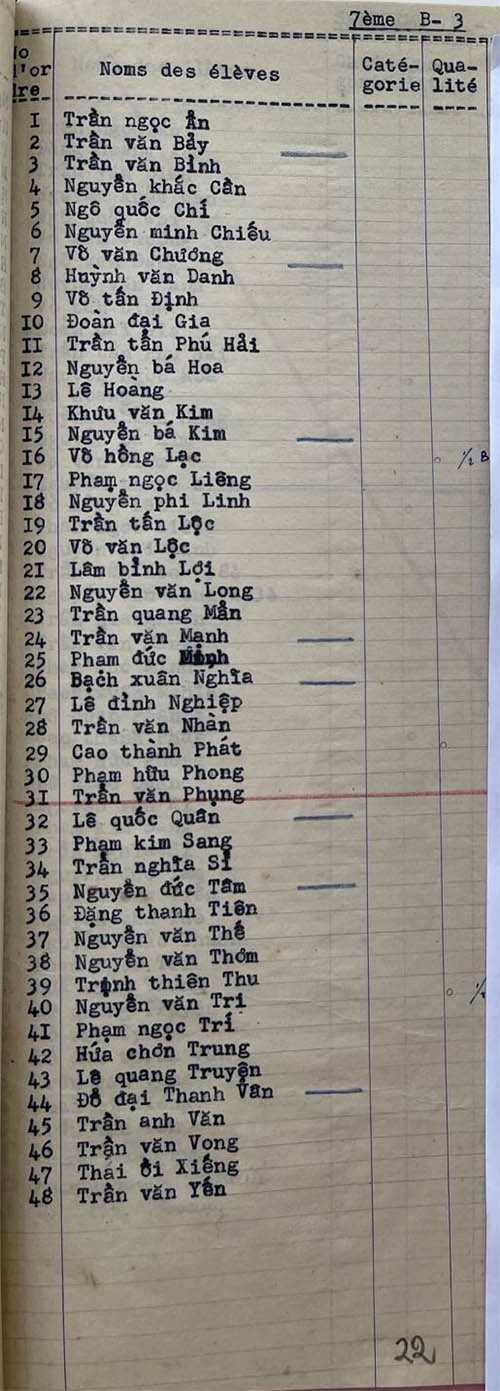 7ème B- 3
No
l'or Noms des élèves Caté- Qua-
dre gorie lité
I Trần ngọc Ẩn
2 Trần văn Bảy
3 Trần văn Bình
4 Nguyễn khắc Cần
5 Ngô quốc Chí
6 Nguyễn minh Chiếu
7 Võ văn Chương
8 Huỳnh văn Danh
9 Võ tấn Định
IO Đoàn đại Gia
II Trần tấn Phú Hải
I2 Nguyễn bá Hoa
I3 Lê Hoàng
I4 Khưu văn Kim
I5 Nguyễn bá Kim
I6 Võ hồng Lạc 1/2 B
I7 Phạm ngọc Liêng
I8 Nguyễn phi Linh
I9 Trần tấn Lộc
20 Võ văn Lộc
2I Lâm bỉnh Lợi
22 Nguyễn văn Long
23 Trần quang Mẫn
24 Trần văn Mạnh
25 Pham đức Minh
26 Bạch xuân Nghĩa
27 Lê đình Nghiệp
28 Trần văn Nhàn
29 Cao thành Phát
30 Phạm hữu Phong
3I Trần văn Phụng
32 Lê quốc Quân
33 Phạm kim Sang
34 Trần nghĩa Sĩ
35 Nguyễn đức Tâm
36 Đặng thanh Tiên
37 Nguyễn văn Thế
38 Nguyễn văn Thơm
39 Trịnh thiên Thu 1/2
40 Nguyễn văn Trị
4I Phạm ngọc Trí
42 Hứa chơn Trung
43 Lê quang Truyện
44 Đỗ đại Thanh Vân
45 Trần anh Văn
46 Trần văn Vong
47 Thái ỗi Xiếng
48 Trần văn Yến
22